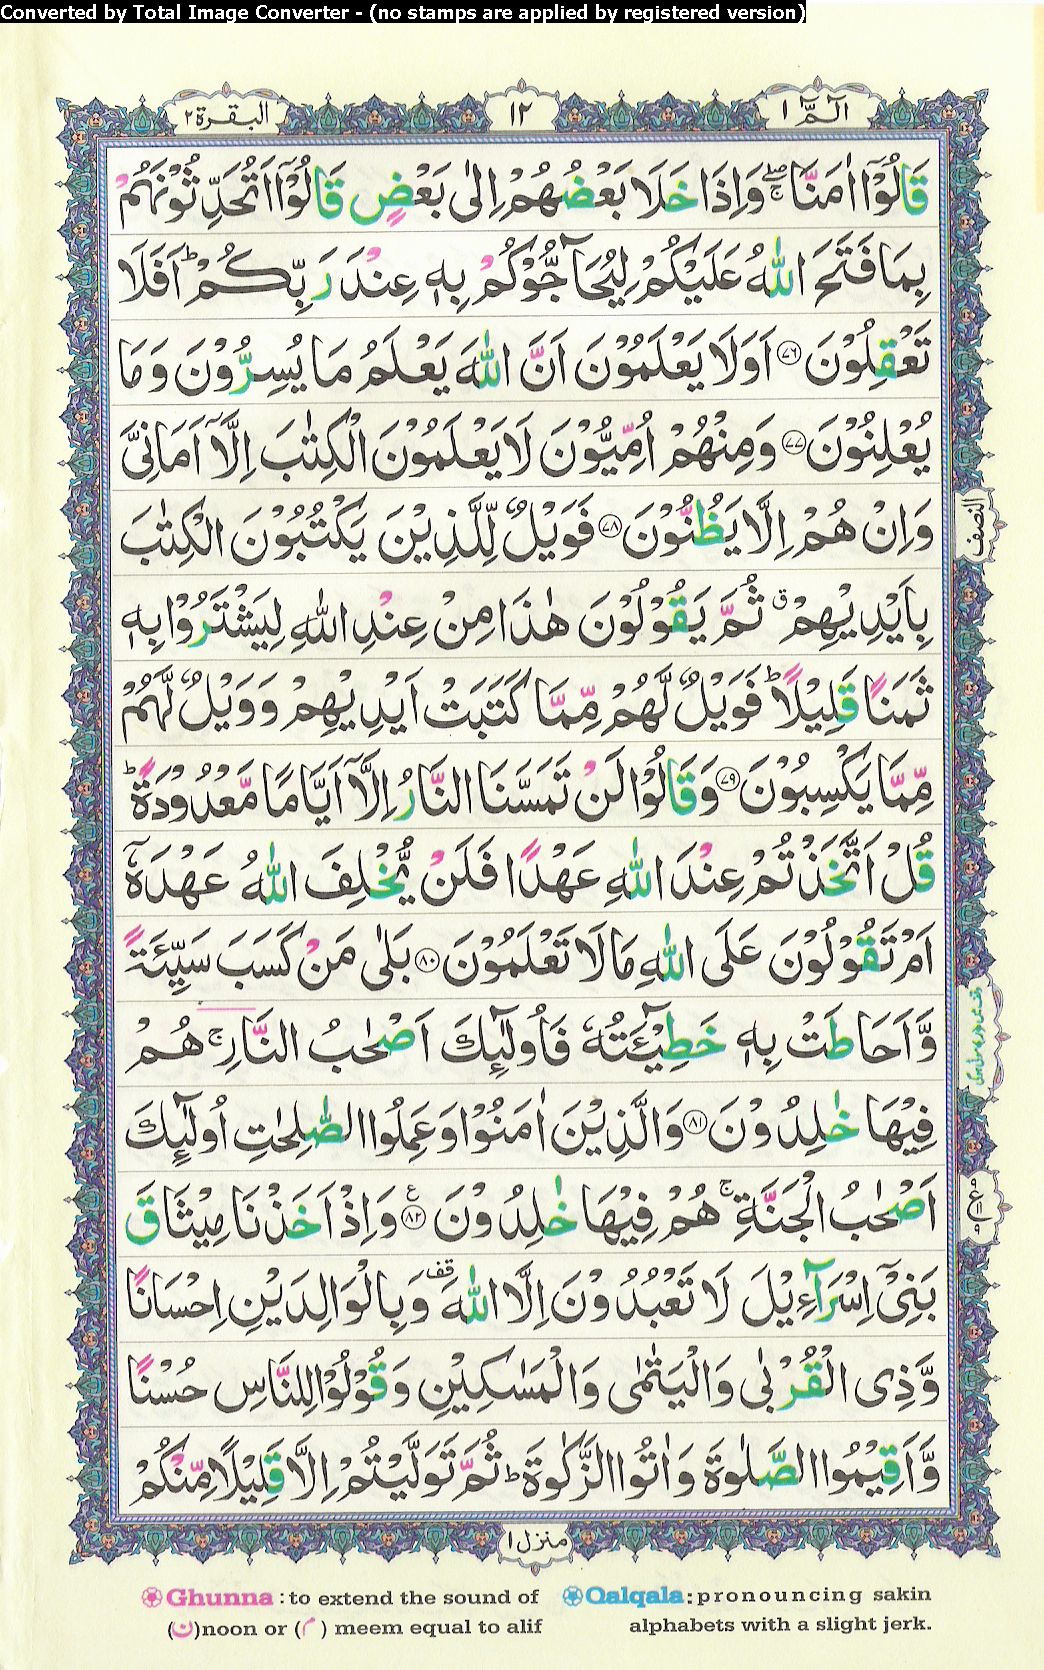 Converted by Total Image Converter - (no stamps are applied by registered version)
الٓمّٓ ١
١٢
البقرة ٢
قَالُوْۤا اٰمَنَّا ۖۚ وَاِذَا خَلَا بَعْضُهُمْ اِلٰى بَعْضٍ قَالُوْۤا اَتُحَدِّثُوْنَهُمْ
بِمَا فَتَحَ اللّٰهُ عَلَيْكُمْ لِيُحَآجُّوْكُمْ بِهٖ عِنْدَ رَبِّكُمْ ؕ اَفَلَا
تَعْقِلُوْنَ ۝۷۶ اَوَلَا يَعْلَمُوْنَ اَنَّ اللّٰهَ يَعْلَمُ مَا يُسِرُّوْنَ وَمَا
يُعْلِنُوْنَ ۝۷۷ وَمِنْهُمْ اُمِّيُّوْنَ لَا يَعْلَمُوْنَ الْكِتٰبَ اِلَّاۤ اَمَانِىَّ
وَاِنْ هُمْ اِلَّا يَظُنُّوْنَ ۝۷۸ فَوَيْلٌ لِّلَّذِيْنَ يَكْتُبُوْنَ الْكِتٰبَ
النصف
بِاَيْدِيْهِمْ ۛ ثُمَّ يَقُوْلُوْنَ هٰذَا مِنْ عِنْدِ اللّٰهِ لِيَشْتَرُوْا بِهٖ
ثَمَنًا قَلِيْلًا ؕ فَوَيْلٌ لَّهُمْ مِّمَّا كَتَبَتْ اَيْدِيْهِمْ وَوَيْلٌ لَّهُمْ
مِّمَّا يَكْسِبُوْنَ ۝۷۹ وَقَالُوْا لَنْ تَمَسَّنَا النَّارُ اِلَّاۤ اَيَّامًا مَّعْدُوْدَةً ؕ
قُلْ اَتَّخَذْتُمْ عِنْدَ اللّٰهِ عَهْدًا فَلَنْ يُّخْلِفَ اللّٰهُ عَهْدَهٗۤ
اَمْ تَقُوْلُوْنَ عَلَى اللّٰهِ مَا لَا تَعْلَمُوْنَ ۝۸۰ بَلٰى مَنْ كَسَبَ سَيِّئَةً
وَّاَحَاطَتْ بِهٖ خَطِيْٓـَٔتُهٗ فَاُولٰٓئِكَ اَصْحٰبُ النَّارِ ۚ هُمْ
فِيْهَا خٰلِدُوْنَ ۝۸۱ وَالَّذِيْنَ اٰمَنُوْا وَعَمِلُوا الصّٰلِحٰتِ اُولٰٓئِكَ
اَصْحٰبُ الْجَنَّةِ ۚ هُمْ فِيْهَا خٰلِدُوْنَ ۝۸۲ ع وَاِذْ اَخَذْنَا مِيْثَاقَ
بَنِىْۤ اِسْرَآءِيْلَ لَا تَعْبُدُوْنَ اِلَّا اللّٰهَ قف وَبِالْوَالِدَيْنِ اِحْسَانًا
وَّذِى الْقُرْبٰى وَالْيَتٰمٰى وَالْمَسٰكِيْنِ وَقُوْلُوْا لِلنَّاسِ حُسْنًا
وَّاَقِيْمُوا الصَّلٰوةَ وَاٰتُوا الزَّكٰوةَ ؕ ثُمَّ تَوَلَّيْتُمْ اِلَّا قَلِيْلًا مِّنْكُمْ
منزل ١
Ghunna : to extend the sound of
(ن)noon or (م) meem equal to alif
Qalqala: pronouncing sakin
alphabets with a slight jerk.